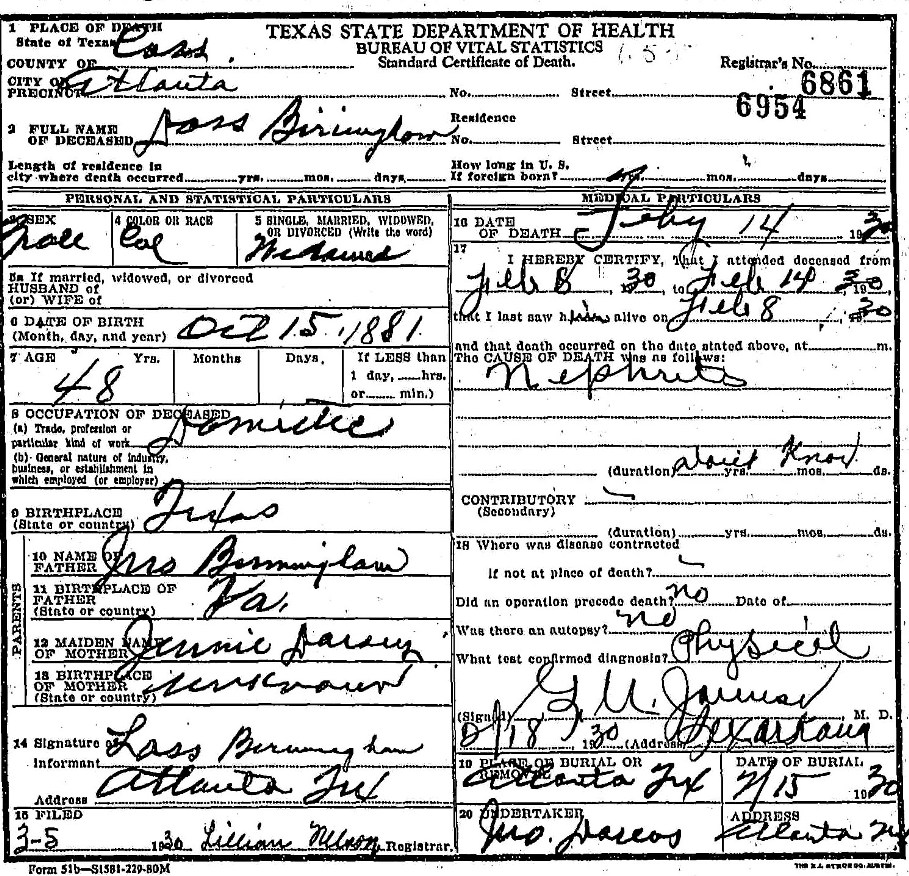 TEXAS STATE DEPARTMENT OF HEALTH
BUREAU OF VITAL STATISTICS
Standard Certificate of Death.
Registrar's No.
6861
6954
1 PLACE OF DEATH
State of Texas
COUNTY OF Cass
CITY OR PRECINCT Atlanta No. Street
2 FULL NAME OF DECEASED Doss Birmingham
Residence No. Street
Length of residence in city where death occurred yrs. mos. days.
How long in U. S. If foreign born? yrs. mos. days
PERSONAL AND STATISTICAL PARTICULARS
3 SEX Male
4 COLOR OR RACE Col
5 SINGLE, MARRIED, WIDOWED, OR DIVORCED (Write the word) Widowed
5a If married, widowed, or divorced
HUSBAND of
(or) WIFE of
6 DATE OF BIRTH (Month, day, and year) Oct 15, 1881
7 AGE Yrs. 48 Months Days, If LESS than 1 day, hrs. or min.)
8 OCCUPATION OF DECEASED
(a) Trade, profession or particular kind of work Domestic
(b) General nature of industry, business, or establishment in which employed (or employer)
9 BIRTHPLACE (State or country) Texas
PARENTS
10 NAME OF FATHER Jno Birmingham
11 BIRTHPLACE OF FATHER (State or country) Va.
12 MAIDEN NAME OF MOTHER Jennie Darsey
13 BIRTHPLACE OF MOTHER (State or country) unknown
14 Signature of Informant Lass Birmingham
Address Atlanta Tex
15 FILED 3-5 1930 Lillian Nelson Registrar.
MEDICAL PARTICULARS
16 DATE OF DEATH Feby 14 1930
17 I HEREBY CERTIFY, That I attended deceased from
Feb 8, 1930 to Feb 14 1930,
that I last saw him alive on Feb 8, 1930
and that death occurred on the date stated above, at m.
The CAUSE OF DEATH was as follows:
Nephrits
(duration) dont Know yrs. mos. ds.
CONTRIBUTORY (Secondary)
(duration) yrs. mos. ds.
18 Where was disease contracted
if not at place of death?
Did an operation precede death? no Date of
Was there an autopsy? no
What test confirmed diagnosis? Physical
(Signed) M. D.
2/18 1930 (Address) Texarkana
19 PLACE OF BURIAL OR REMOVAL Atlanta Tex
DATE OF BURIAL 2/15 1930
20 UNDERTAKER Jno.
ADDRESS Atlanta Tex
Form 51b—S1581-229-80M